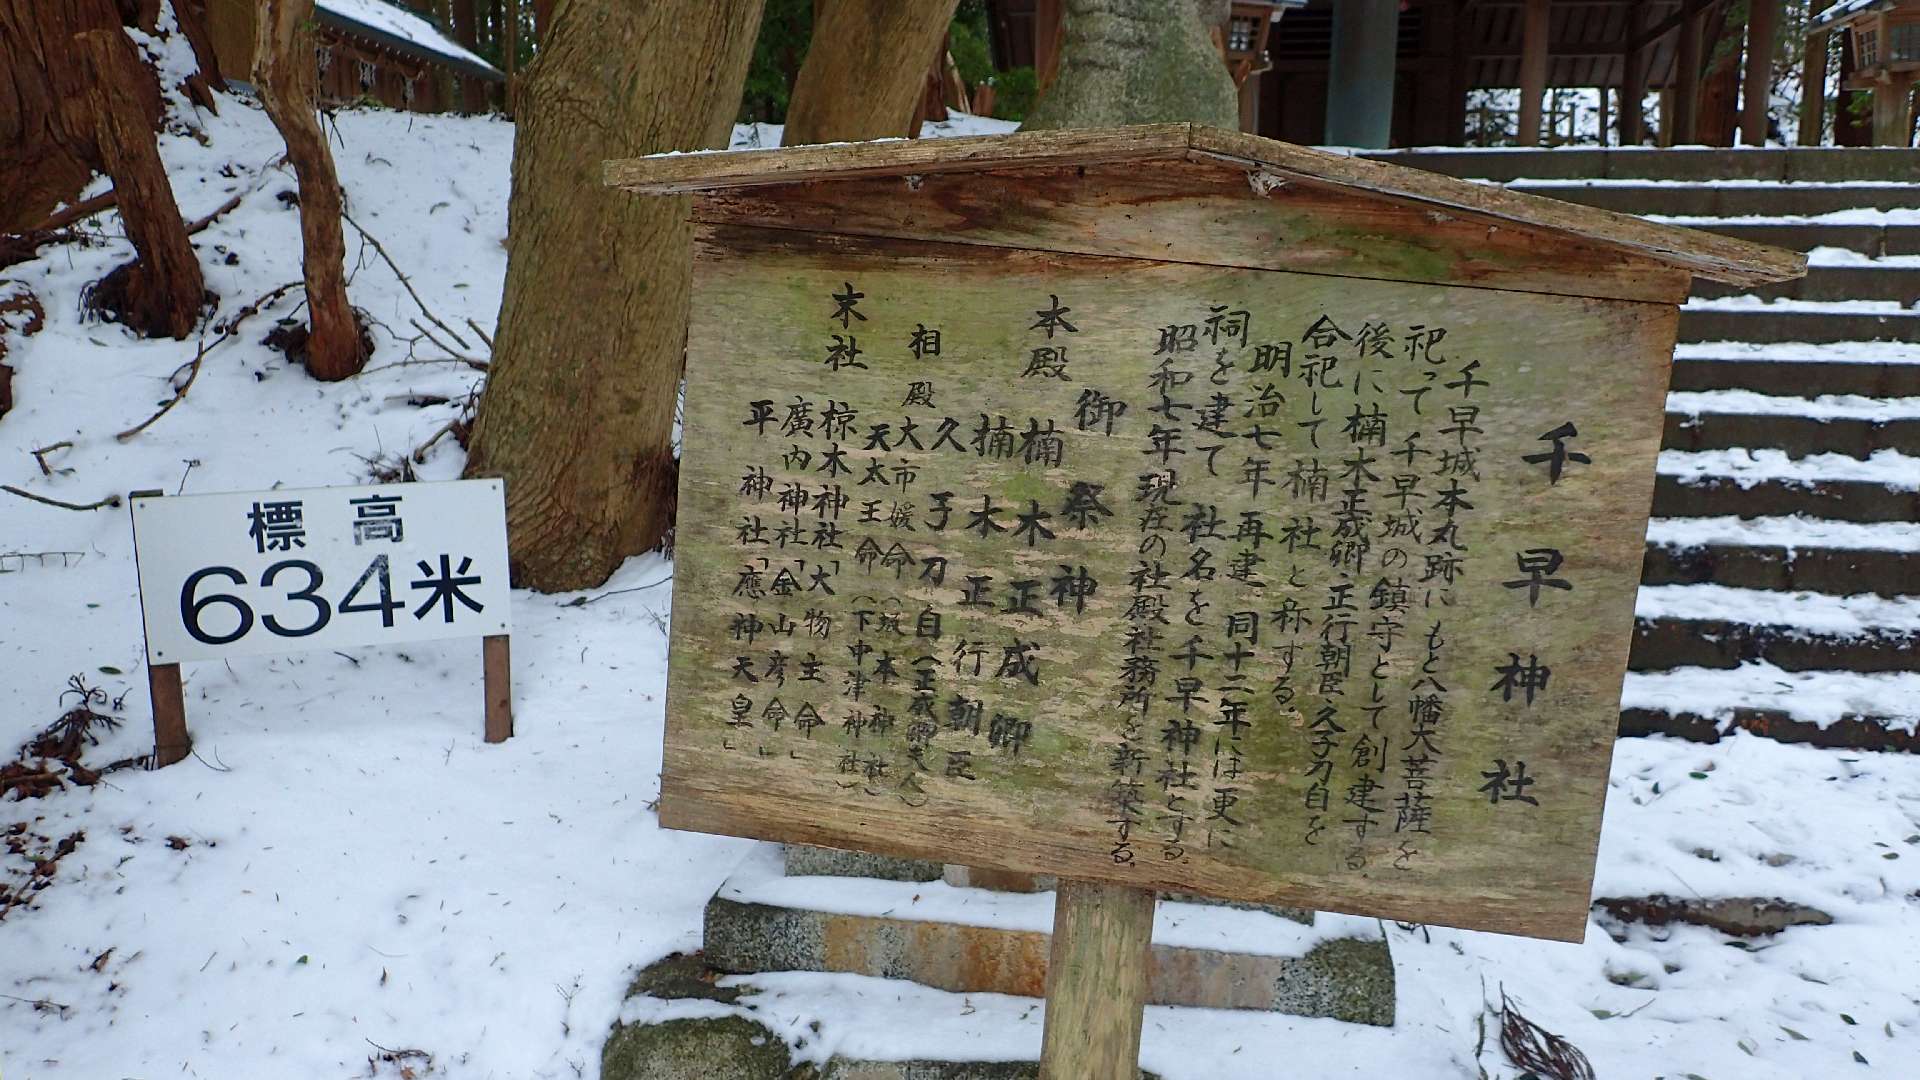 千早神社
千早城本丸跡にもと八幡大菩薩を
祀って千早城の鎮守として創建する。
後に楠木正成卿、正行朝臣、久子刀自を
合祀して楠社と称する。
明治七年再建、同十二年には更に
祠を建て社名を千早神社とする。
昭和七年現在の社殿社務所を新築する。
御祭神
本殿 楠木正成卿
楠木正行朝臣
久子刀自（正成卿夫人）
相殿 大市媛命（坂本神社）
天太王命（下中津神社）
末社 椋木神社「大物主命」
廣内神社「金山彦命」
平神社「應神天皇」
標高
634米